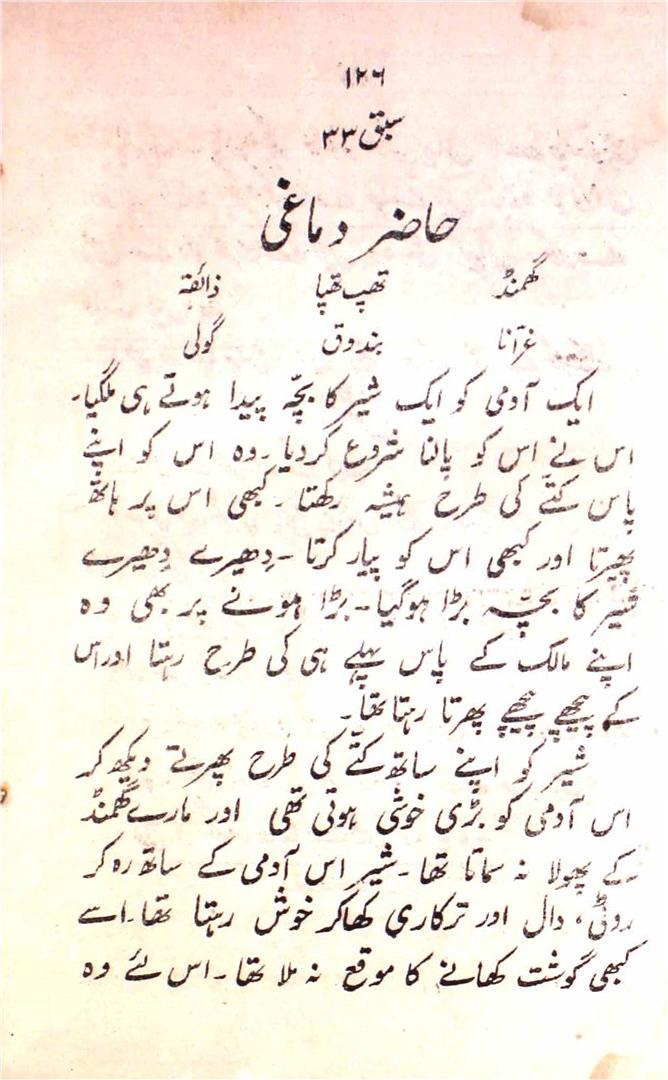 ۱۲۶
سبق ۳۳
حاضر دماغی
گھمنڈ تھپ تھپا ذائقہ
غرّانا بندوق گولی
ایک آدمی کو ایک شیر کا بچّہ پیدا ہوتے ہی ملگیا۔
اس نے اس کو پالنا شروع کردیا۔ وہ اس کو اپنے
پاس کتے کی طرح ہمیشہ رکھتا۔ کبھی اس پر ہاتھ
پھیرتا اور کبھی اس کو پیار کرتا۔ دِھیرے دِھیرے
شیر کا بچّہ بڑا ہوگیا۔ بڑا ہونے پر بھی وہ
اپنے مالک کے پاس پہلے ہی کی طرح رہتا اور اس
کے پیچھے پیچھے پھرتا رہتا تھا۔
شیر کو اپنے ساتھ کتّے کی طرح پھرتے دیکھ کر
اس آدمی کو بڑی خوشی ہوتی تھی اور مارے گھمنڈ
کے پھولا نہ سماتا تھا۔ شیر اس آدمی کے ساتھ رہ کر
روٹی، دال اور ترکاری کھاکر خوش رہتا تھا۔ اسے
کبھی گوشت کھانے کا موقع نہ ملا تھا۔ اس لئے وہ